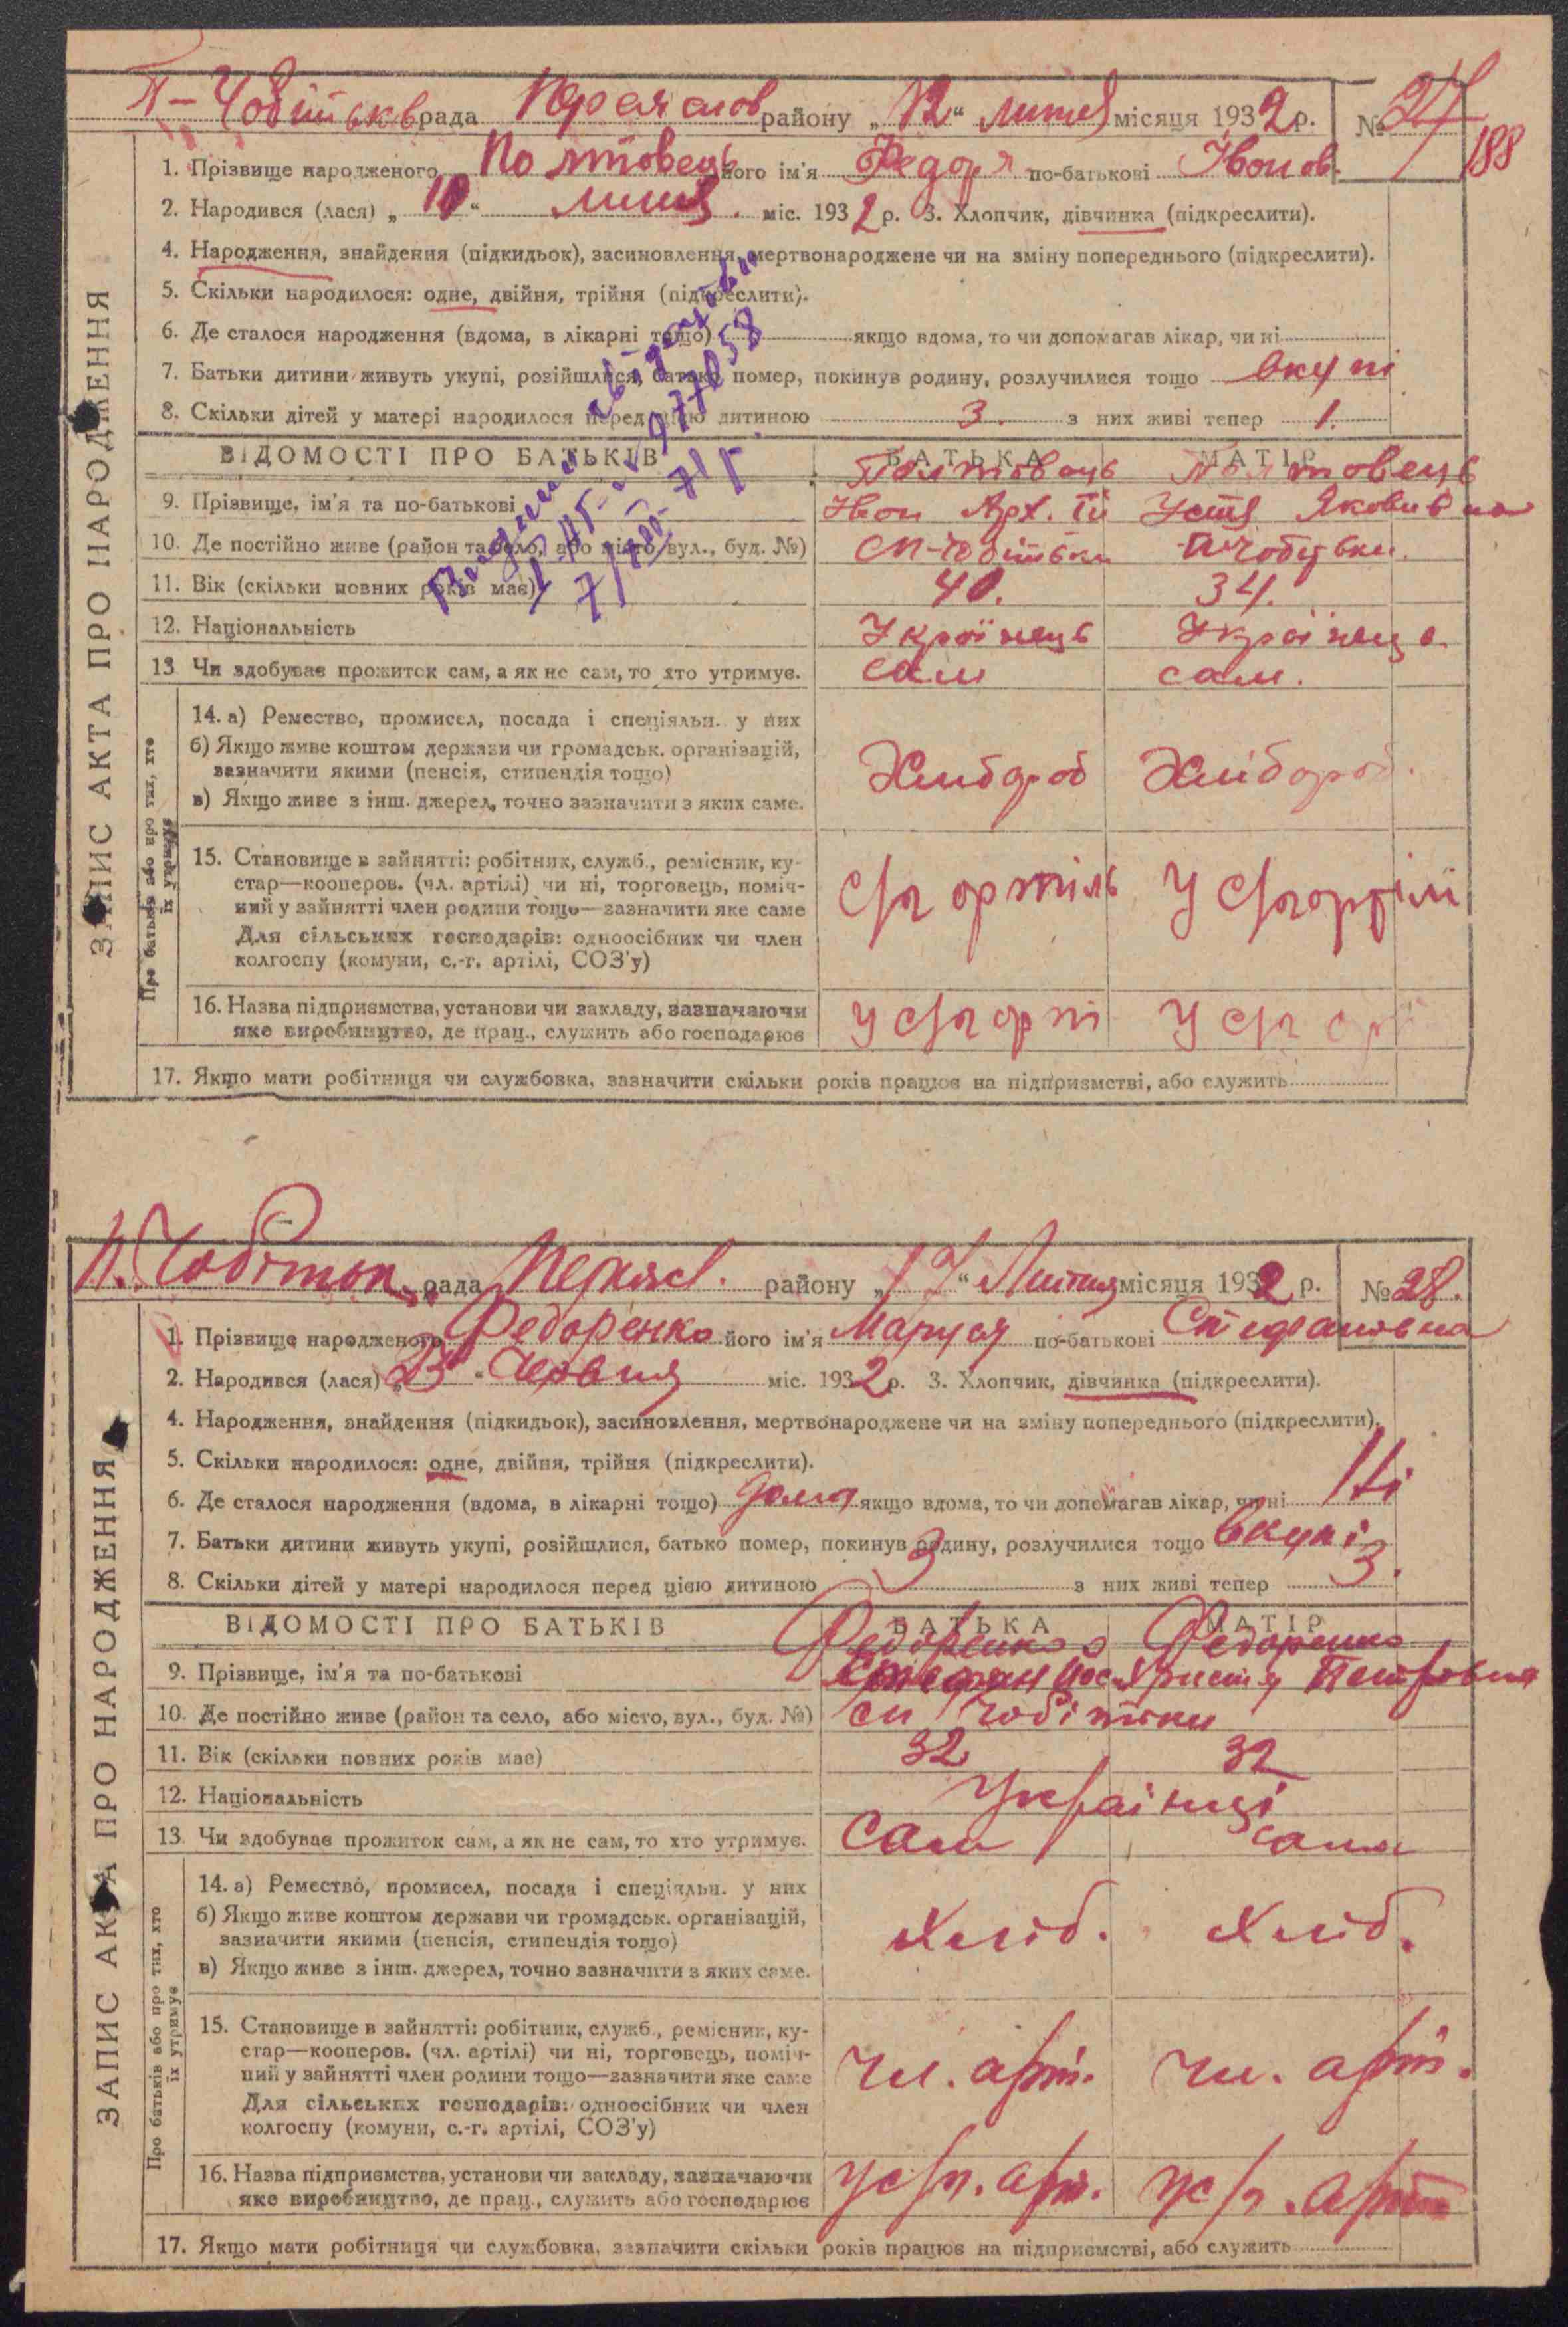 П-Чобітьків рада Переяслов району „12“ липня місяця 1932 р. № 27
188
1. Прізвище народженого Полтовець його ім'я Федоря по-батькові Івонов.
2. Народився (лася) „10“ липня міс. 1932 р. 3. Хлопчик, дівчинка (підкреслити).
4. Народження, знайдення (підкидьок), засиновлення, мертвонароджене чи на зміну попереднього (підкреслити).
5. Скільки народилося: одне, двійня, трійня (підкреслити).
6. Де сталося народження (вдома, в лікарні тощо) якщо вдома, то чи допомагав лікар, чи ні
7. Батьки дитини живуть укупі, розійшлися, батько помер, покинув родину, розлучилися тощо вкупі
8. Скільки дітей у матері народилося перед цією дитиною 3. з них живі тепер 1.
ВІДОМОСТІ ПРО БАТЬКІВ БАТЬКА МАТІР
Полтовець Полтовець
9. Прізвище, ім'я та по-батькові Івон Арх. Устя Яковивна
10. Де постійно живе (район та село, або місто, вул., буд. №) СП-Чобітьки ПЧобутьки.
11. Вік (скільки повних років має) 40. 34.
12. Національність Україінець Україінець
13 Чи здобуває прожиток сам, а як не сам, то хто утримує. сам сам.
14. а) Ремество, промисел, посада і спеціяльн. у них
б) Якщо живе коштом держави чи громадськ. організацій,
зазначити якими (пенсія, стипендія тощо) Хлибороб Хлібороб.
в) Якщо живе з інш. джерел, точно зазначити з яких саме.
15. Становище в зайнятті: робітник, служб., ремісник, ку-
стар—кооперов. (чл. артілі) чи ні, торговець, поміч-
ний у зайнятті член родини тощо—зазначити яке саме С/г ортіль У С/г ортілі
Для сільських господарів: одноосібник чи член
колгоспу (комуни, с.-г. артілі, СОЗ'у)
16. Назва підприємства, установи чи закладу, зазначаючи
яке виробництво, де прац., служить або господарює У с/г орт У с/г
17. Якщо мати робітниця чи службовка, зазначити скільки років працює на підприємстві, або служить
ЗАПИС АКТА ПРО НАРОДЖЕННЯ
Про батьків або про тих, хто
їх утримує
П. Чобіток. рада Переясл. району „17“ Липня місяця 1932 р. № 28.
1. Прізвище народженого Федоренко його ім'я Маруся по-батькові Стефановна
2. Народився (лася) „23“ Червня міс. 1932 р. 3. Хлопчик, дівчинка (підкреслити).
4. Народження, знайдення (підкидьок), засиновлення, мертвонароджене чи на зміну попереднього (підкреслити).
5. Скільки народилося: одне, двійня, трійня (підкреслити).
6. Де сталося народження (вдома, в лікарні тощо) дома якщо вдома, то чи допомагав лікар, чи ні Ні
7. Батьки дитини живуть укупі, розійшлися, батько помер, покинув родину, розлучилися тощо вкупі
8. Скільки дітей у матері народилося перед цією дитиною 3 з них живі тепер 3.
ВІДОМОСТІ ПРО БАТЬКІВ БАТЬКА МАТІР
Федоренко Федоренко
9. Прізвище, ім'я та по-батькові Стефан Христя Петровна
10. Де постійно живе (район та село, або місто, вул., буд. №) СП Чобітьки
11. Вік (скільки повних років має) 32 32
12. Національність Українці
13. Чи здобуває прожиток сам, а як не сам, то хто утримує. Сам сама
14. а) Ремество, промисел, посада і спеціяльн. у них
б) Якщо живе коштом держави чи громадськ. організацій,
зазначити якими (пенсія, стипендія тощо) Хліб. Хліб.
в) Якщо живе з інш. джерел, точно зазначити з яких саме.
15. Становище в зайнятті: робітник, служб., ремісник, ку-
стар—кооперов. (чл. артілі) чи ні, торговець, поміч-
ний у зайнятті член родини тощо—зазначити яке саме чл. арт. чл. арт.
Для сільських господарів: одноосібник чи член
колгоспу (комуни, с.-г. артілі, СОЗ'у)
16. Назва підприємства, установи чи закладу, зазначаючи
яке виробництво, де прац., служить або господарює у с/г. арт. у с/г. арт
17. Якщо мати робітниця чи службовка, зазначити скільки років працює на підприємстві, або служить
ЗАПИС АКТА ПРО НАРОДЖЕННЯ
Про батьків або про тих, хто
їх утримує